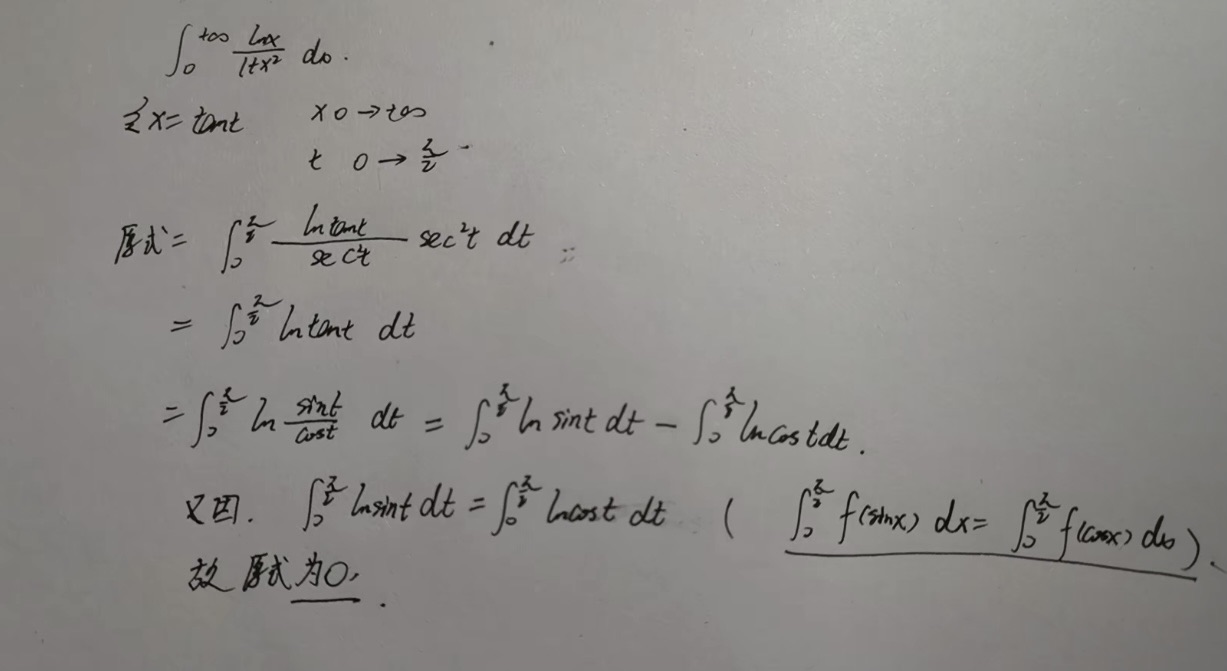 ∫₀^{+∞} lnx/(1+x²) dx.
令x=tant   x 0→+∞
t 0→π/2
原式= ∫₀^{π/2} lntant/sec²t sec²t dt
= ∫₀^{π/2} lntant dt
= ∫₀^{π/2} ln sint/cost dt = ∫₀^{π/2} ln sint dt − ∫₀^{π/2} lncostdt.
又因. ∫₀^{π/2} lnsint dt = ∫₀^{π/2} lncost dt ( ∫₀^{π/2} f(sinx) dx= ∫₀^{π/2} f(cosx) dx ).
故原式为0.